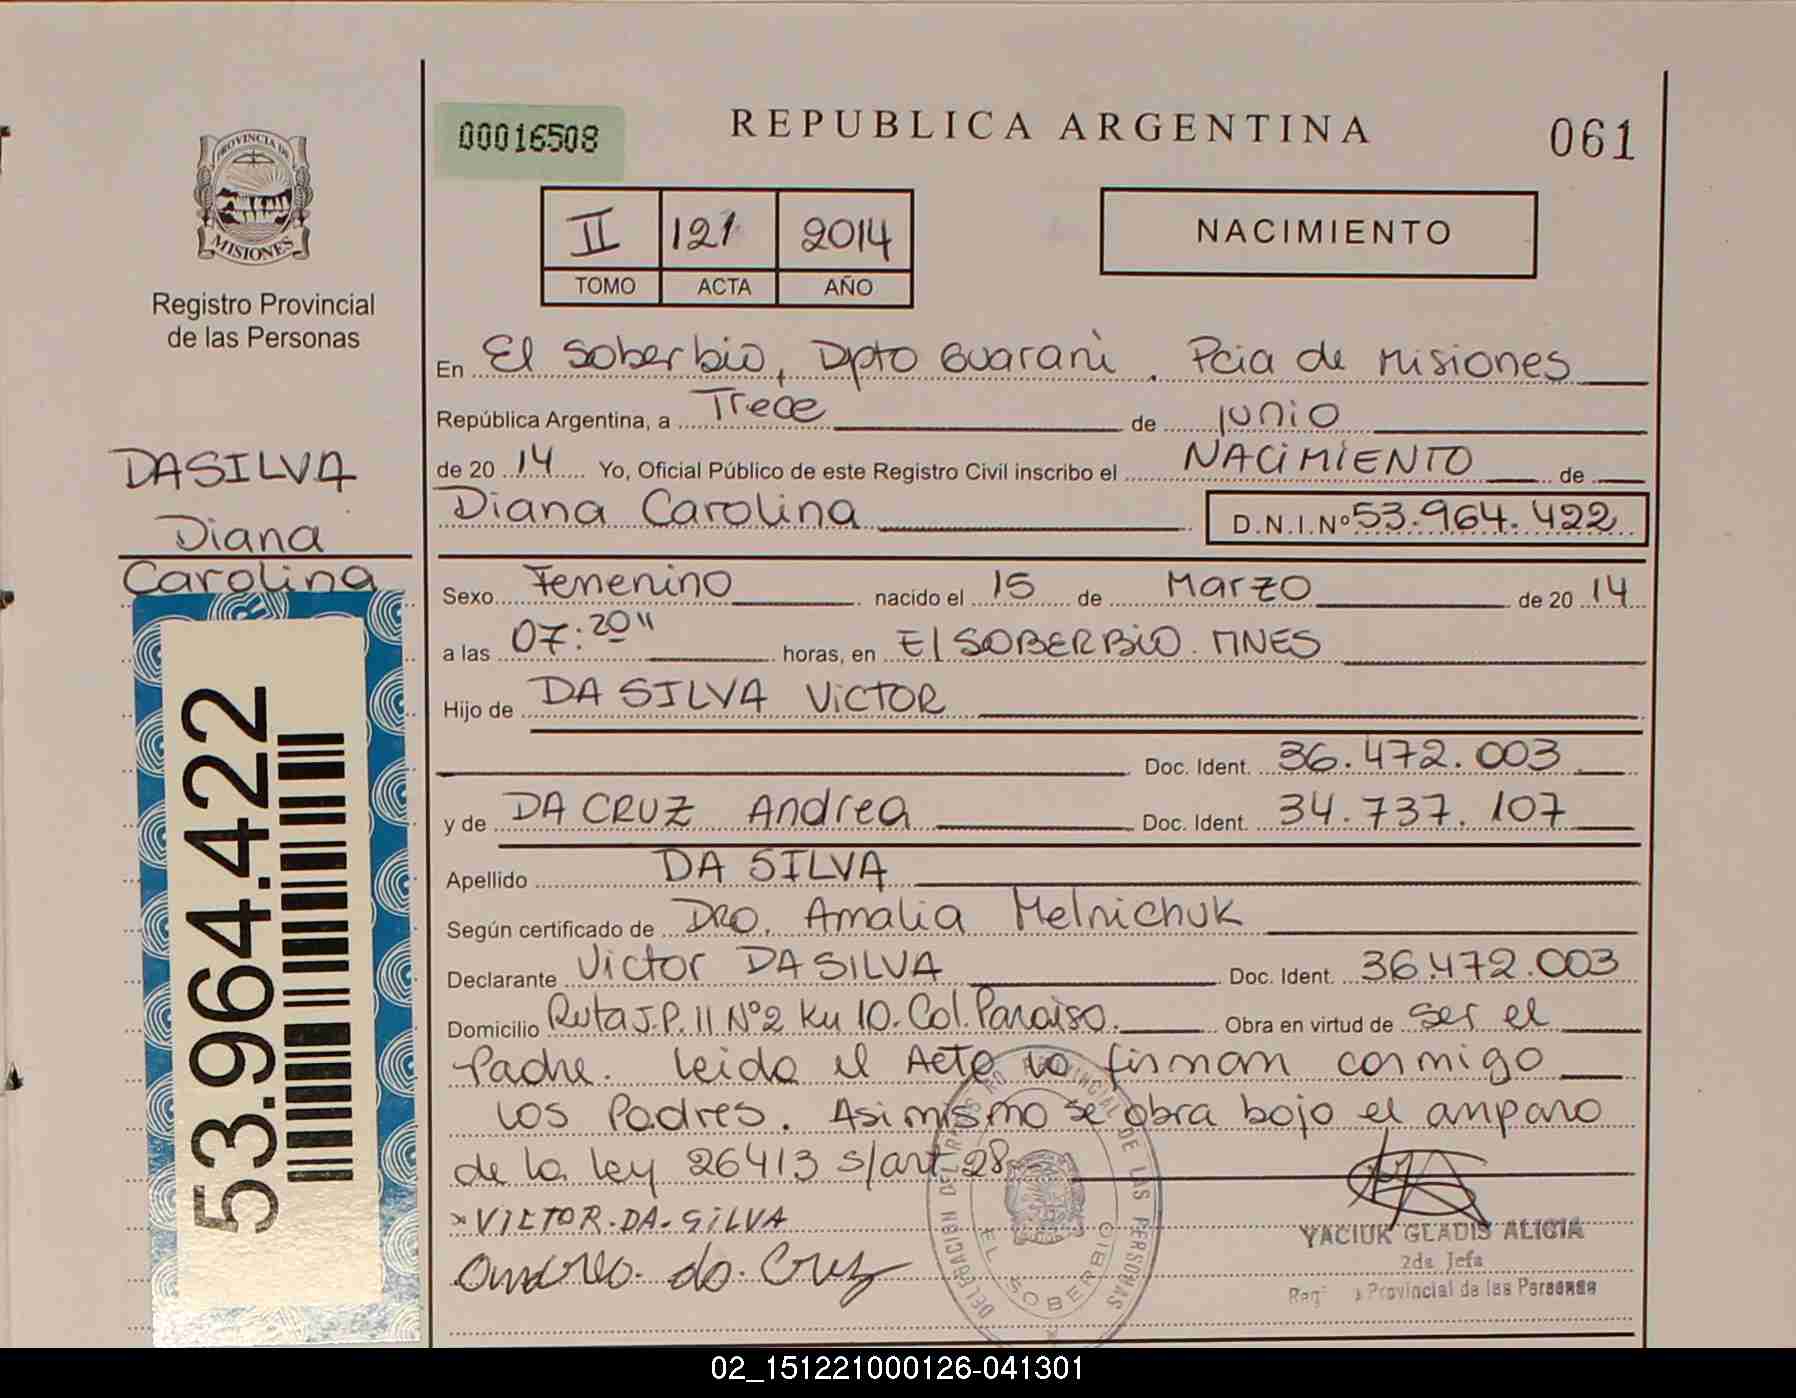 00016508
REPUBLICA ARGENTINA
061
PROVINCIA DE
MISIONES
Registro Provincial
de las Personas
II 121 2014
TOMO ACTA AÑO
NACIMIENTO
En El Soberbio, Dpto Guaraní. Pcia de Misiones
República Argentina, a Trece de junio
de 2014 Yo, Oficial Público de este Registro Civil inscribo el NACIMIENTO de
Diana Carolina D.N.I.Nº 53.964.422
DASILVA
Diana
Carolina
Sexo Femenino nacido el 15 de Marzo de 2014
a las 07:20" horas, en El SOBERBIO. MNES
Hijo de DA SILVA VICTOR
Doc. Ident. 36.472.003
y de DA CRUZ Andrea Doc. Ident. 34.737.107
Apellido DA SILVA
Según certificado de Dra. Amalia Melnichuk
Declarante Victor DA SILVA Doc. Ident. 36.472.003
Domicilio Ruta J.P. II Nº2 Km 10. Col. Paraiso. Obra en virtud de ser el
Padre. Leida el Acta la firman conmigo
los Padres. Asimismo se obra bajo el amparo
de la ley 26413 s/art 28
VICTOR.DA-SILVA
Andrea. da. Cruz
53.964.422
DELEGACION DEL REGISTRO PROVINCIAL DE LAS PERSONAS
EL SOBERBIO
YACIUK GLADIS ALICIA
2da Jefa
Provincial de las Personas
02_151221000126-041301